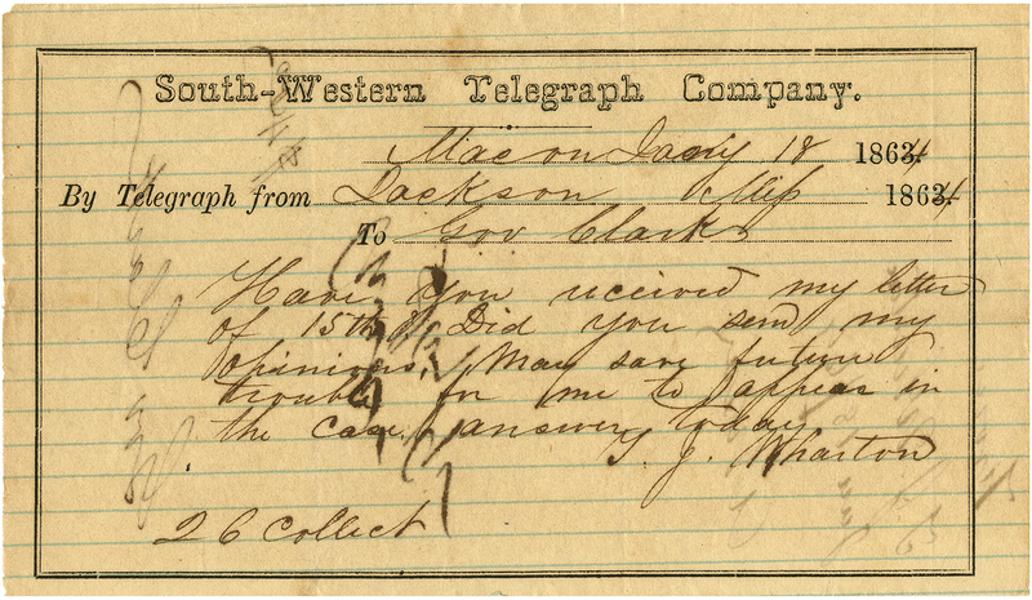 South-Western Telegraph Company.
Macon Jany 18 1864
By Telegraph from Jackson Miss 1864
To Gov Clark
Have you received my letter
of 15th Did you send my
opinions. May save future
trouble for me to appear in
the case. answer today
T. J. Wharton
26 collect